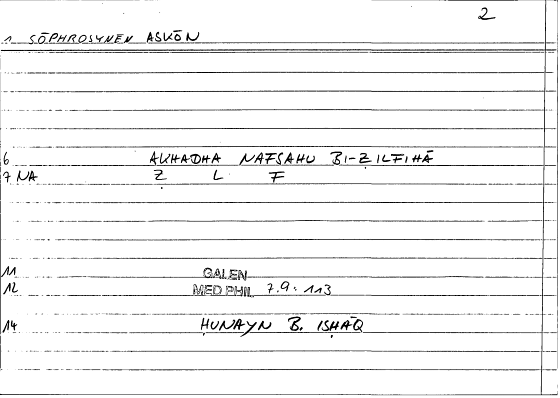 2
1 SŌPHROSYNEN ASKŌN
6 AKHADHA NAFSAHU BI-ẒILFIHĀ
7 NA Ẓ L F
11 GALEN
12 MED PHIL 7.9: 113
14 ḤUNAYN B. ISḤĀQ